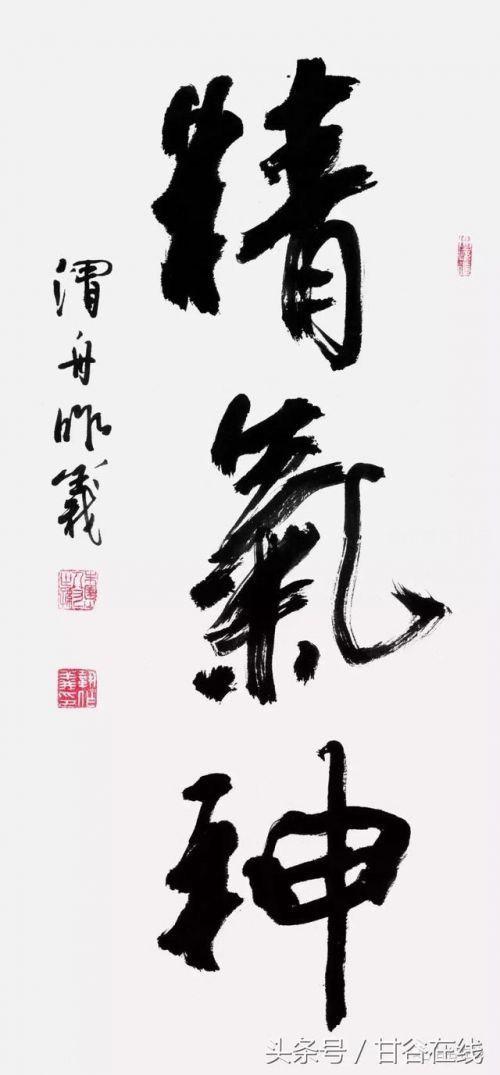 精氣神
渭舟昨義
头条号／甘谷在线